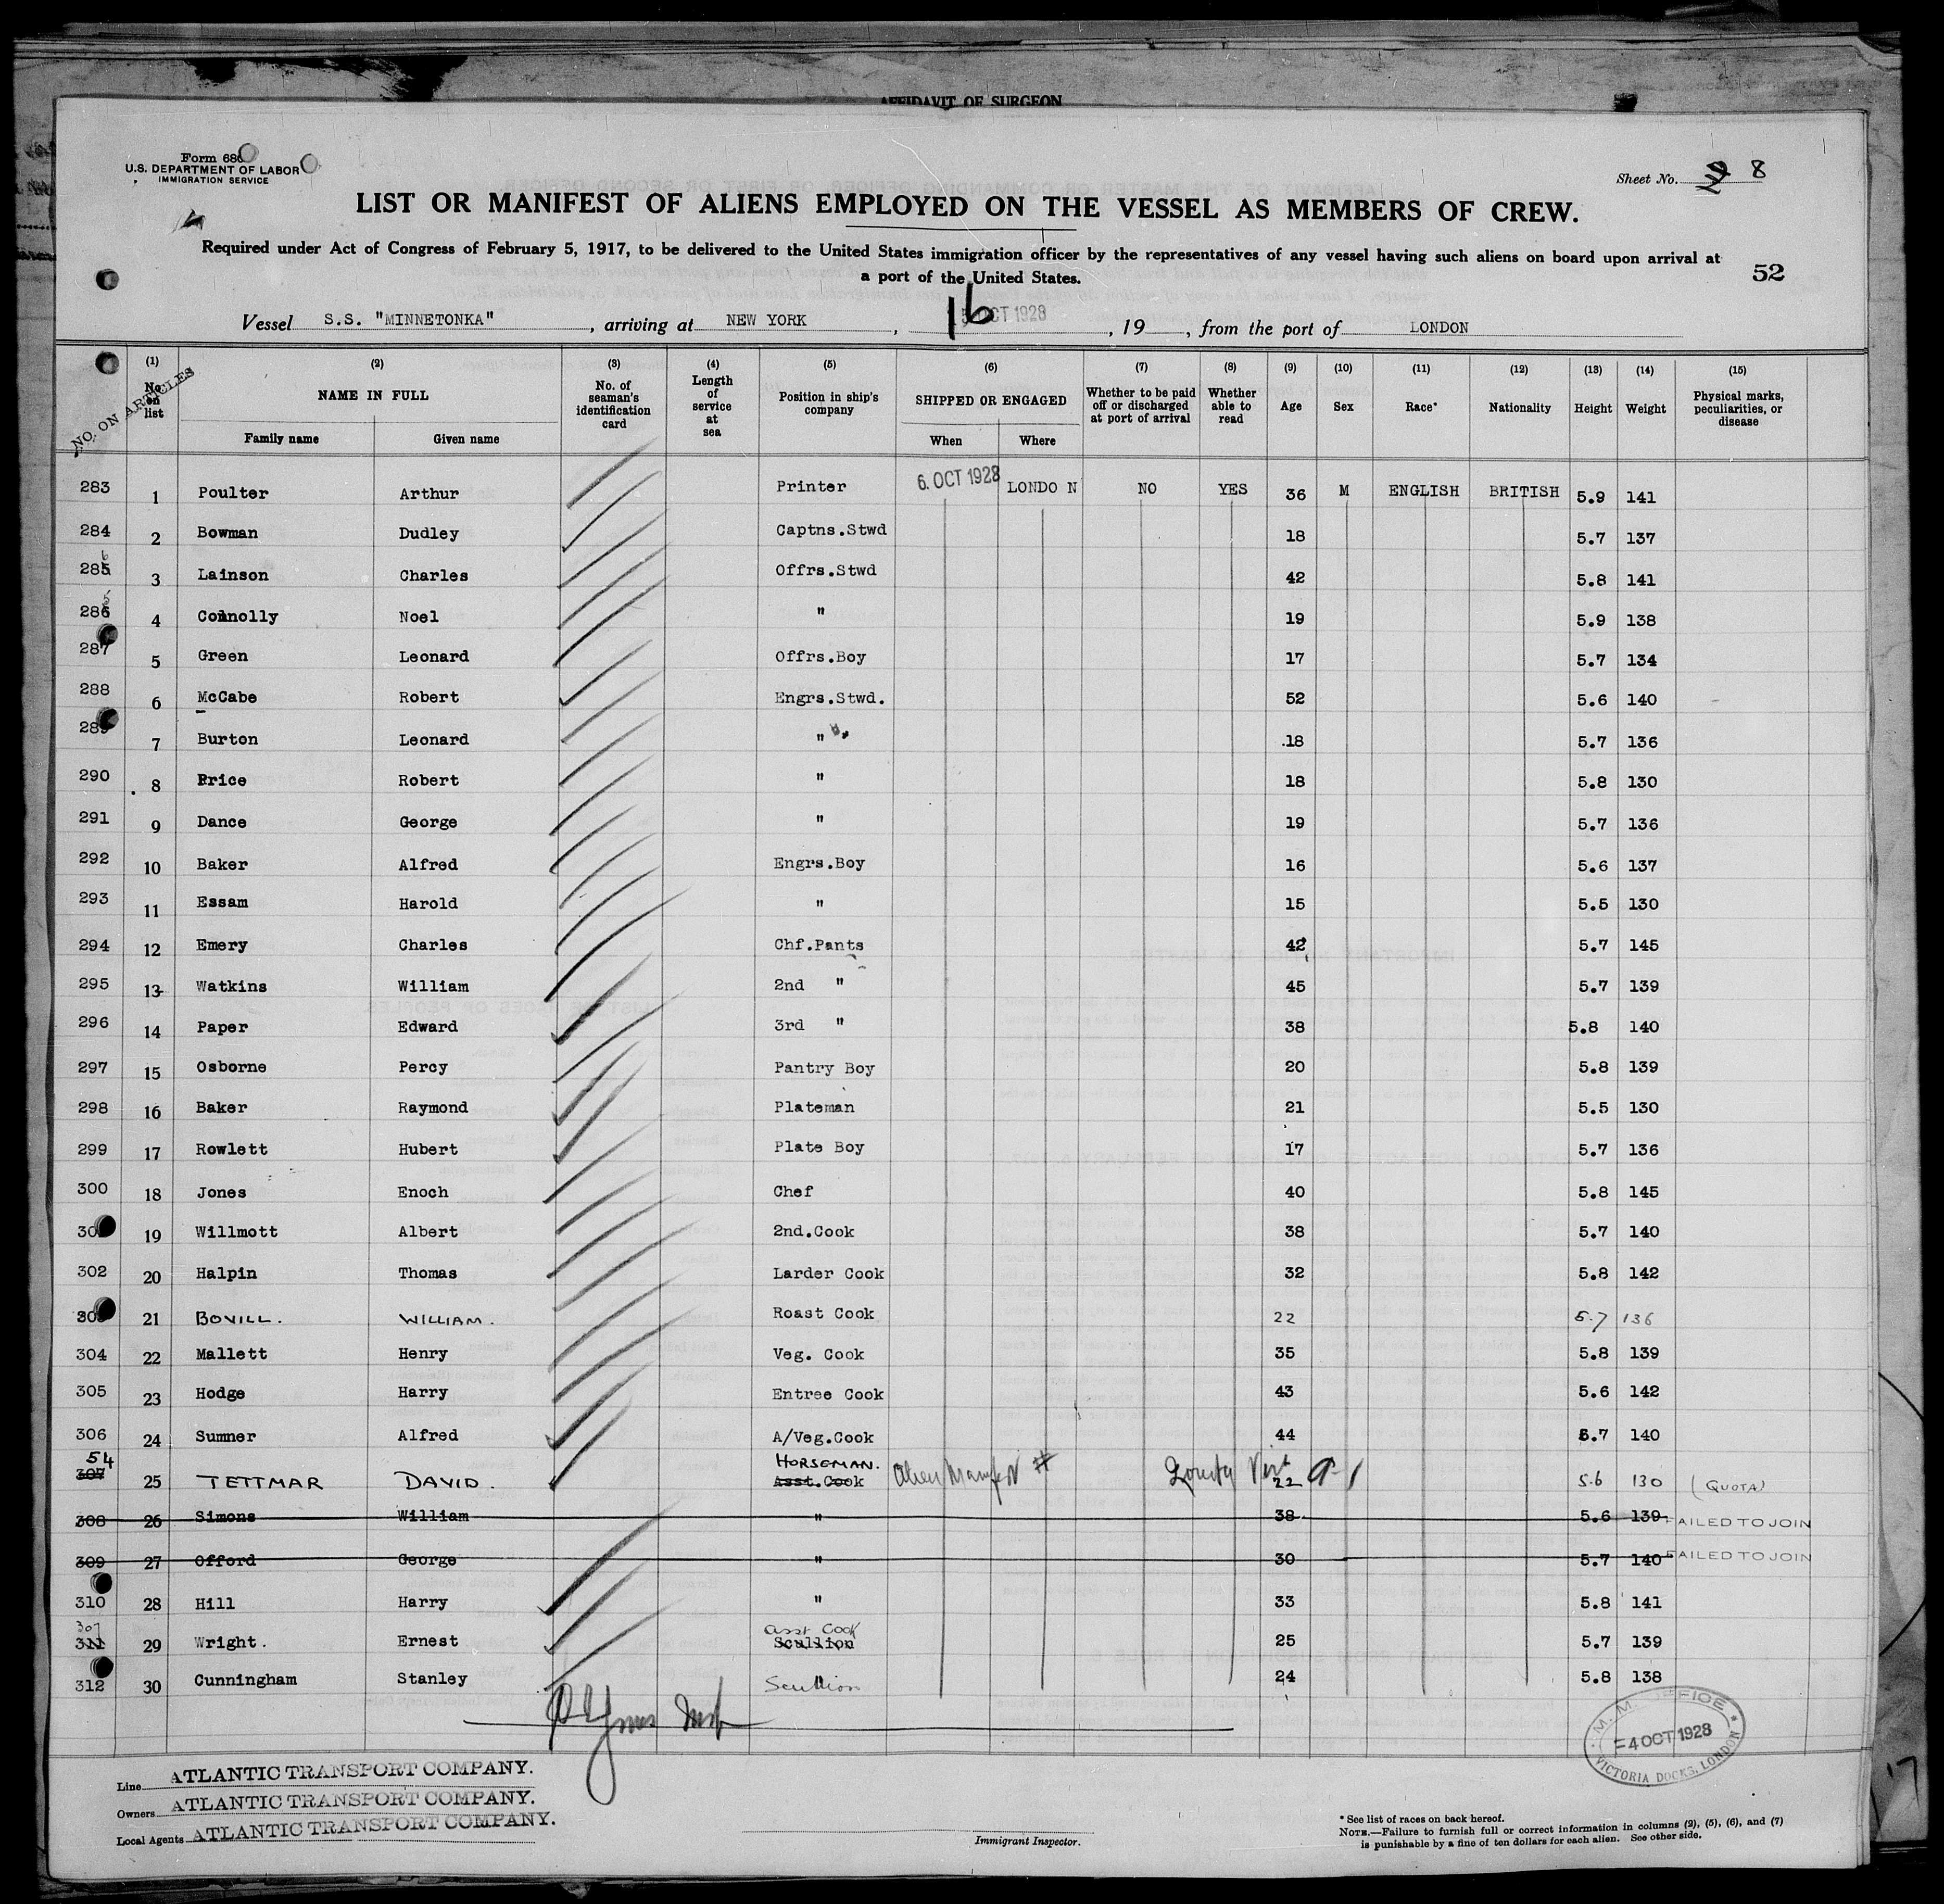 AFFIDAVIT OF SURGEON
Form 680
U.S. DEPARTMENT OF LABOR
IMMIGRATION SERVICE
Sheet No. 8
LIST OR MANIFEST OF ALIENS EMPLOYED ON THE VESSEL AS MEMBERS OF CREW.
Required under Act of Congress of February 5, 1917, to be delivered to the United States immigration officer by the representatives of any vessel having such aliens on board upon arrival at
a port of the United States.
52
Vessel S.S. "MINNETONKA", arriving at NEW YORK, 16 OCT 1928, 19, from the port of LONDON
NO. ON ARTICLES
(1) (2) (3) (4) (5) (6) (7) (8) (9) (10) (11) (12) (13) (14) (15)
No. on list NAME IN FULL Family name Given name No. of seaman's identification card Length of service at sea Position in ship's company SHIPPED OR ENGAGED When Where Whether to be paid off or discharged at port of arrival Whether able to read Age Sex Race* Nationality Height Weight Physical marks, peculiarities, or disease
283 1 Poulter Arthur Printer 6. OCT 1928 LONDO N NO YES 36 M ENGLISH BRITISH 5.9 141
284 2 Bowman Dudley Captns.Stwd 18 5.7 137
285 6 3 Lainson Charles Offrs.Stwd 42 5.8 141
286 5 4 Connolly Noel " 19 5.9 138
287 5 Green Leonard Offrs.Boy 17 5.7 134
288 6 McCabe Robert Engrs.Stwd. 52 5.6 140
289 7 Burton Leonard " 18 5.7 136
290 8 Price Robert " 18 5.8 130
291 9 Dance George " 19 5.7 136
292 10 Baker Alfred Engrs.Boy 16 5.6 137
293 11 Essam Harold " 15 5.5 130
294 12 Emery Charles Chf.Pants 42 5.7 145
295 13 Watkins William 2nd " 45 5.7 139
296 14 Paper Edward 3rd " 38 5.8 140
297 15 Osborne Percy Pantry Boy 20 5.8 139
298 16 Baker Raymond Plateman 21 5.5 130
299 17 Rowlett Hubert Plate Boy 17 5.7 136
300 18 Jones Enoch Chef 40 5.8 145
30 19 Willmott Albert 2nd.Cook 38 5.7 140
302 20 Halpin Thomas Larder Cook 32 5.8 142
30 21 BOVILL. WILLIAM. Roast Cook 22 5.7 136
304 22 Mallett Henry Veg. Cook 35 5.8 139
305 23 Hodge Harry Entree Cook 43 5.6 142
306 24 Sumner Alfred A/Veg.Cook 44 5.7 140
54
HORSEMAN.
307 25 TETTMAR DAVID. Asst.Cook Alien Manifest # 22 5.6 130 (QUOTA)
308 26 Simons William " 38 5.6 139 FAILED TO JOIN
309 27 Offord George " 30 5.7 140 FAILED TO JOIN
310 28 Hill Harry " 33 5.8 141
307 Asst Cook
311 29 Wright. Ernest Scullion 25 5.7 139
312 30 Cunningham Stanley " Scullion 24 5.8 138
M.M. OFFICE
-4 OCT 1928
VICTORIA DOCKS, LONDON
Line ATLANTIC TRANSPORT COMPANY.
Owners ATLANTIC TRANSPORT COMPANY.
Local Agents ATLANTIC TRANSPORT COMPANY.
Immigrant Inspector.
* See list of races on back hereof.
NOTE.—Failure to furnish full or correct information in columns (2), (5), (6), and (7)
is punishable by a fine of ten dollars for each alien. See other side.
17